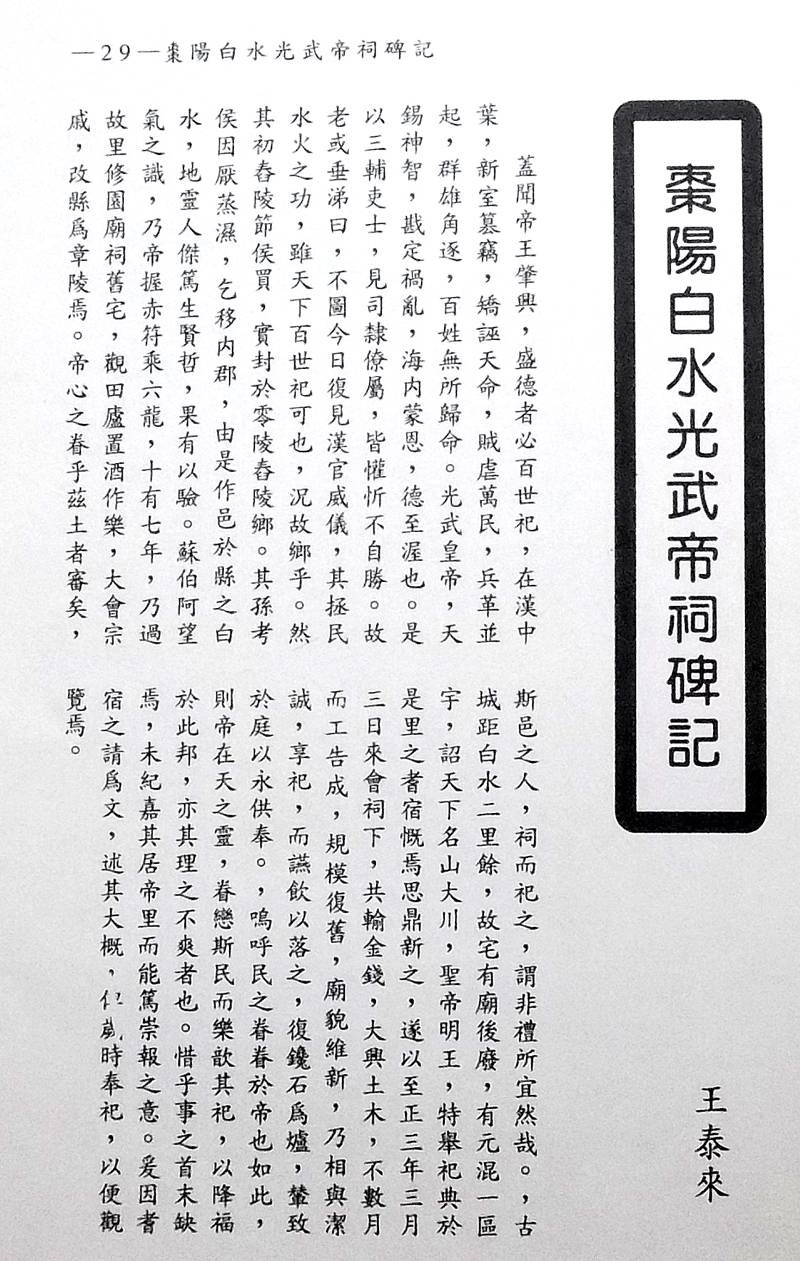 —29—棗陽白水光武帝祠碑記
棗陽白水光武帝祠碑記
王泰來
蓋聞帝王肇興，盛德者必百世祀，在漢中
葉，新室墓竊，矯誣天命，賊虐萬民，兵革並
起，群雄角逐，百姓無所歸命。光武皇帝，天
錫神智，戡定禍亂，海內蒙恩，德至渥也。是
以三輔吏士，見司隸僚屬，皆懽忻不自勝。故
老或垂涕曰，不圖今日復見漢官威儀，其拯民
水火之功，雖天下百世祀可也，況故鄉乎。然
其初舂陵節侯買，實封於零陵舂陵鄉。其孫考
侯因厭蒸濕，乞移內郡，由是作邑於縣之白
水，地靈人傑篤生賢哲，果有以驗。蘇伯阿望
氣之識，乃帝握赤符乘六龍，十有七年，乃過
故里修園廟祠舊宅，觀田廬置酒作樂，大會宗
戚，改縣爲章陵焉。帝心之眷乎茲土者審矣，
斯邑之人，祠而祀之，謂非禮所宜然哉。，古
城距白水二里餘，故宅有廟後廢，有元混一區
宇，詔天下名山大川，聖帝明王，特舉祀典於
是里之耆宿慨焉思鼎新之，遂以至正三年三月
三日來會祠下，共輸金錢，大興土木，不數月
而工告成，規模復舊，廟貌維新，乃相與潔
誠，享祀，而讌飲以落之，復鑱石爲爐，輦致
於庭以永供奉。，嗚呼民之眷眷於帝也如此，
則帝在天之靈，眷戀斯民而樂歆其祀，以降福
於此邦，亦其理之不爽者也。惜乎事之首末缺
焉，未紀嘉其居帝里而能篤崇報之意。爰因耆
宿之請爲文，述其大概，時奉祀，以便觀
覽焉。